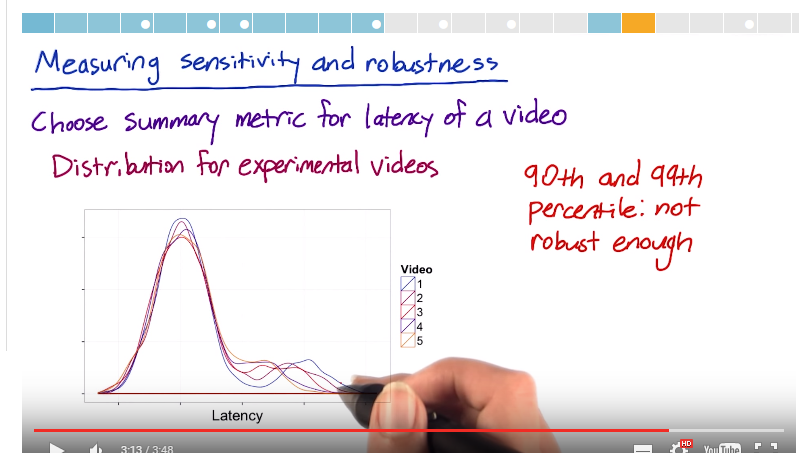 Measuring sensitivity and robustness
Choose summary metric for latency of a video
Distribution for experimental videos
90th and 99th
percentile: not
robust enough
Video
1
2
3
4
5
Latency
3:13 / 3:48
HD
YouTube